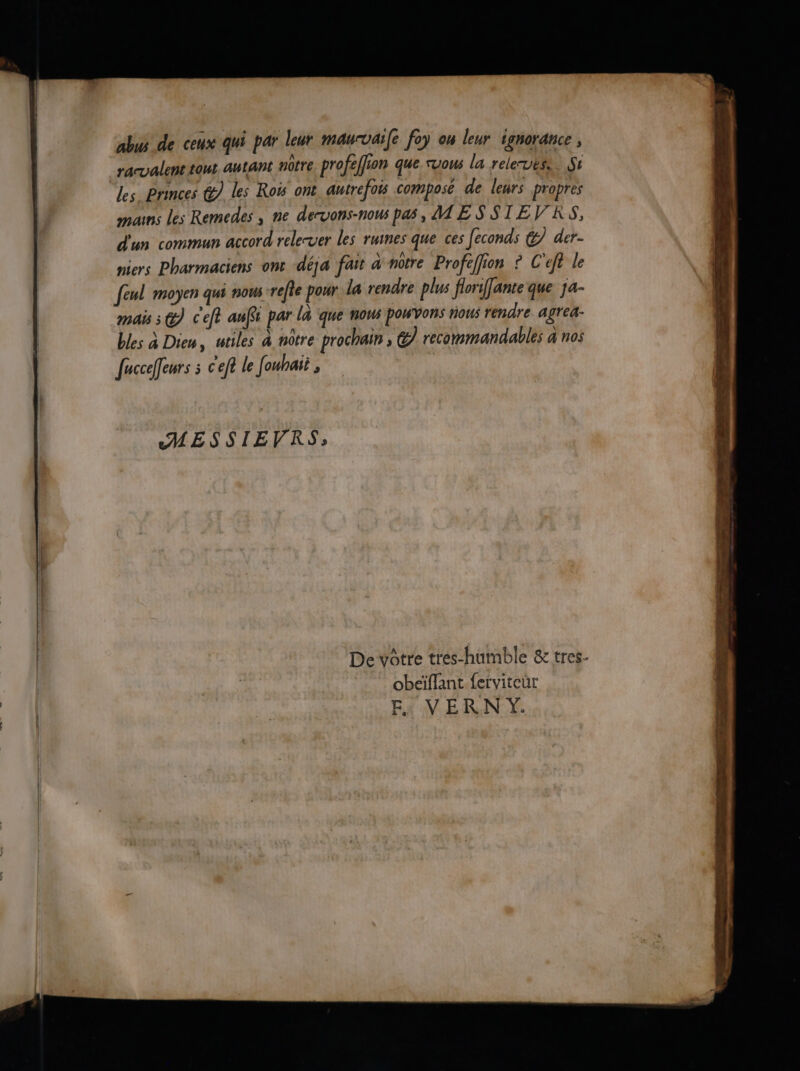 abus de ceux qui par leur mauvaiſe foy ou leur ignorance,
ravalent tout autant nôtre profeſſion que vous la relevés. Si
les Princes & les Rois ont autrefois composé de leurs propres
mains les Remedes, ne devons-nous pas, MESSIEVRS,
d'un commun accord relever les ruines que ces ſeconds & der-
niers Pharmaciens ont déja fait à nôtre Profeſſion ? C'eſt le
ſeul moyen qui nous reſte pour la rendre plus floriſſante que ja-
mais ; & c'eſt auſſi par là que nous pouvons nous rendre agrea-
bles à Dieu, utiles à nôtre prochain, & recommandables à nos
ſucceſſeurs ; c'eſt le ſouhait,
MESSIEVRS,
De vôtre tres-humble & tres-
obeïſſant ſerviteur
F. VERNY.